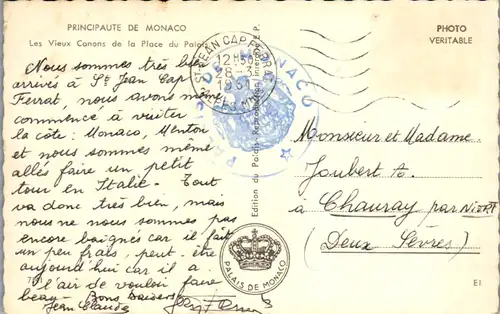 PRINCIPAUTE DE MONACO
Les Vieux Canons de la Place du Palais
PHOTO
VERITABLE
Nous sommes très bien
arrivés à St Jean Cap
Ferrat, nous avons même
commencé à visiter
la côte : Monaco, Menton
et nous sommes même
allés faire un petit
tour en Italie. Tout
va donc très bien, mais
nous ne nous sommes pas
encore baignés car il fait
un peu frais, peut-être
aujourd'hui car il a
l'air de vouloir faire
beau - Bons Baisers
Jean Claude
ST JEAN CAP FERRAT
12H50
28-3
1961
ALPES MMES
MONACO
Edition du Palais. Reproduction interdite
Monsieur et Madame
Joubert A.
à Chauray par NIORT
(Deux Sèvres)
PALAIS DE MONACO
EI